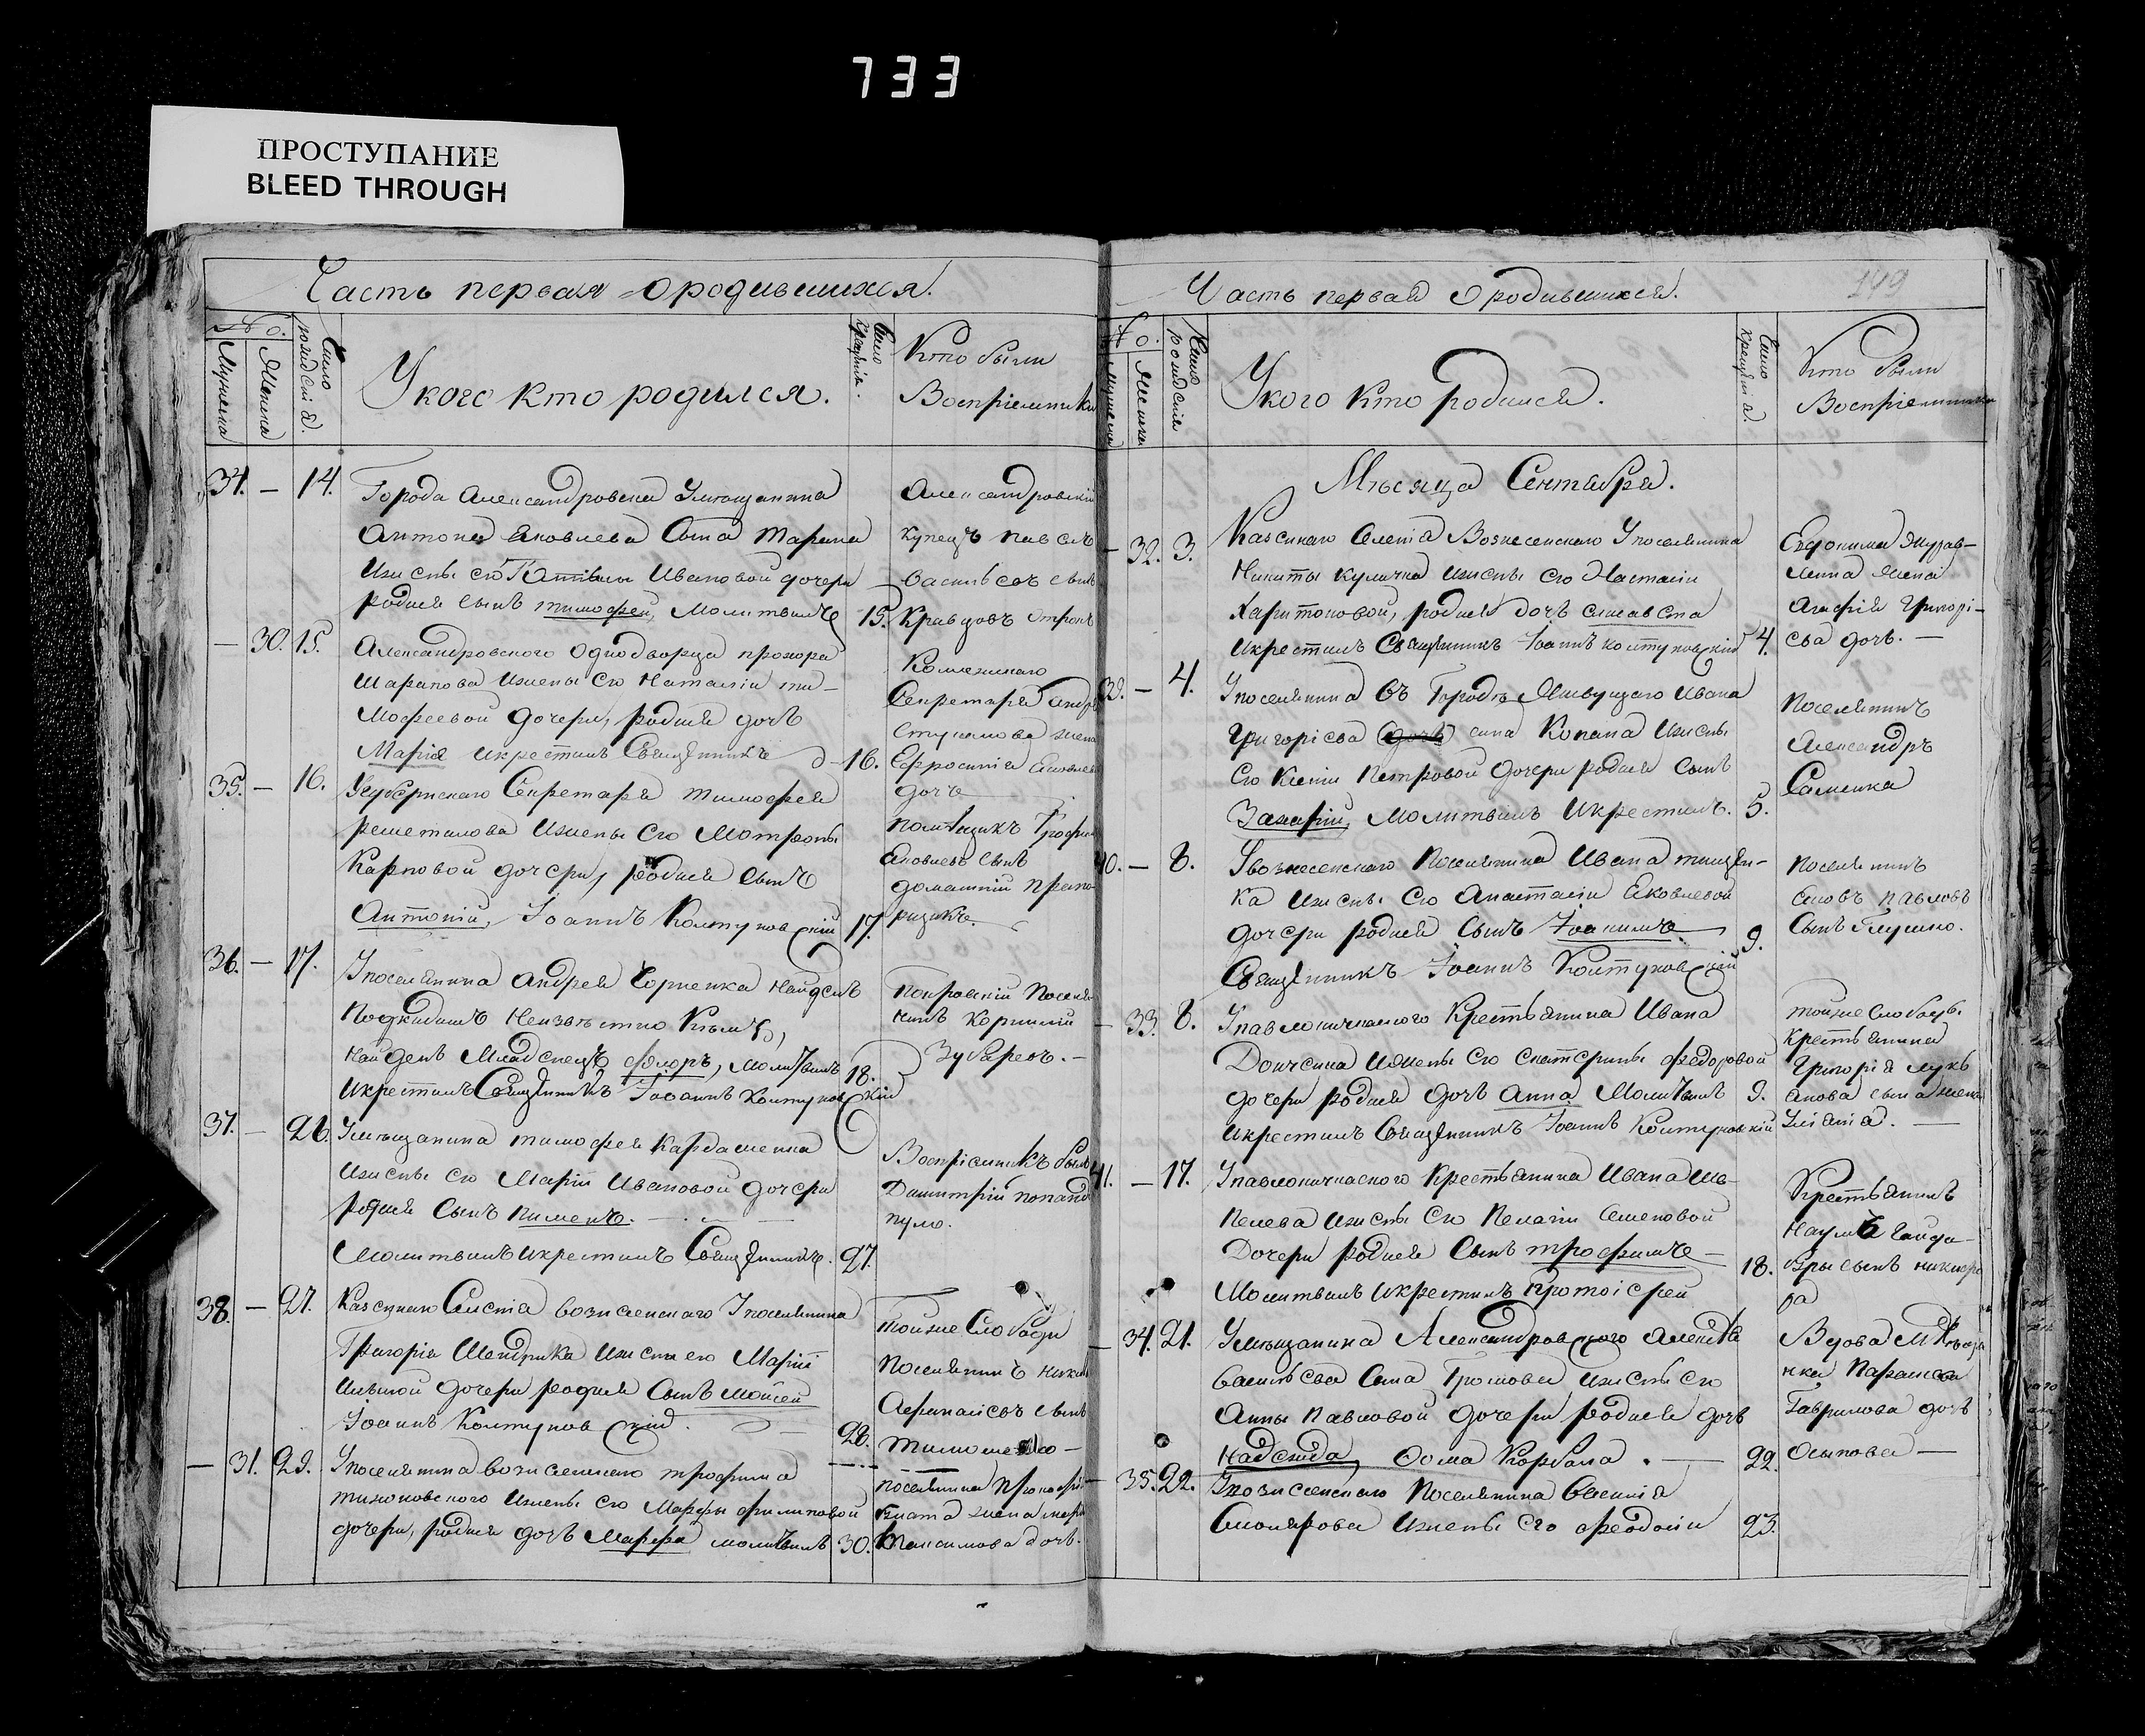 733
ПРОСТУПАНИЕ
BLEED THROUGH
Часть первая о родившихся.
№ о.
Мужеска
Женска
Число рождения.
У кого кто родился.
Число крещенія.
Кто были
Воспріемники
34. — 14.
Города Александровска У мещанина
Антона Яковлева Сына
И жены его Ивановой дочери
родился сынъ тимофей, Молитвилъ 15.
Александровскій
купецъ павелъ
Васильевъ сынъ
Кравцовъ
— 30. 15.
Александровского Однодворца прохора
Шарапова И жены его Наталіи ти-
мофеевой дочери, родися дочь
Марія и крестилъ Священникъ 16.
Секретаря
жена
Ефросинія Яковлева
дочь
35. — 16.
Губернскаго Секретаря тимофея
решетилова И жены его Мотроны
Карповой дочери, родися сынъ
Антоній, Іоаннъ Колтуновскій 17.
помѣщикъ Трофимъ
Яковлевъ сынъ
домашній
36. — 17.
У поселянина андрея Чорненка найденъ
Подкидишъ Неизвѣстно Кѣмъ,
найденъ Младенецъ флоръ, молитвилъ 18.
И крестилъ Священникъ Іоаннъ Колтуновскій
Покровскій Поселя
нинъ Корнилій
Зубарев.—
37. — 26.
У мещанина тимофея Кардашенка
И жены его Маріи Ивановой дочери
родися сынъ пименъ.
Молитвилъ и крестилъ Священникъ. 27.
Воспріемникъ былъ
Димитрій попандо
пуло.
38. — 27.
Казеннаго Селенія вознесенскаго У поселянина
Григорія Шендрика И жены его Маріи
дочери родися Сынъ Моисей
Іоаннъ Колтуновскій. 28.
Тойже Слободы
Поселянинъ
Афанасіевъ сынъ
— 31. 29.
У поселянина вознесенскаго трофима
тижновского И жены его Марфы филиповой
дочери, родися дочь Марфа молитвилъ 30.
поселянина
жена
Максимова дочь.
Часть первая О родившихся.
149
№ о.
Мужеска
Женска
Число рождения
У кого кто родися.
Число крещенія.
Кто были
Воспріемники
Мѣсяца Сентября.
— 32. 3.
Казеннаго Селенія Вознесенскаго У поселянина
Никиты кулички И жены его Настасіи
Харитоновой, родися дочь елисавета
и крестилъ Священникъ Іоаннъ колтуновскій 4.
Евдокима Журав-
лина жена
Агафія Григорі-
ева дочь. —
39. — 4.
У поселянина въ Городѣ Живущаго Ивана
Григорієва сина Копана И жены
Его Ксеніи Петровой дочери родися сынъ
Захарій, Молитвилъ И крестилъ. 5.
Поселянинъ
Александръ
Саленка
40. — 8.
У вознесенскаго Поселянина Ивана тищен-
ка И жены Его Анастасіи Яковлевой
дочери родися сынъ Іоакимъ 9.
Священникъ Іоаннъ Колтуновскій
Поселянинъ
Яковъ павловъ
сынъ Глушко.
— 33. 8.
У павлокичкаского Крестьянина Ивана
И жены Его екатерины федоровой
дочери родися дочь Анна Молитвилъ 9.
И крестилъ Священникъ Іоаннъ Колтуновскій
тойже Слободы
крестьянина
Григорія лукь
янова сына жена
Уліянія. —
41. — 17.
У павлокичкаского Крестьянина Ивана Ше-
пелева И жены Его Пелагіи Семеновой
Дочери родися Сынъ трофимъ —
Молитвилъ И крестилъ протоіерей 18.
Крестьянинъ
Наумъ Гайда-
— 34. 21.
У мещанина Александровского Алексѣя
Васильева Сына Громова И жены его
Анны Павловой дочери родися дочь
Надежда, Фома Корбала. — 22.
Вдова
Параскева
Гаврилова дочь
Осипова —
— 35. 22.
У вознесенскаго Поселянина Василія
Смолярова И жены Его феодосіи 23.